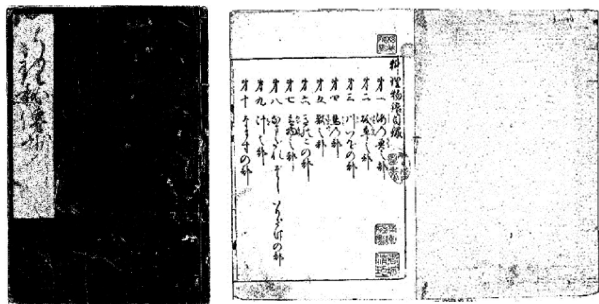 料理物語目録
第一 海の魚之部
第二 磯草之部
第三 川いをの部
第四 鳥の部
第五 獣之部
第六 きのこの部
第七 青物之部
第八 なまだれ だし いりざけの部
第九 汁之部
第十 なますの部